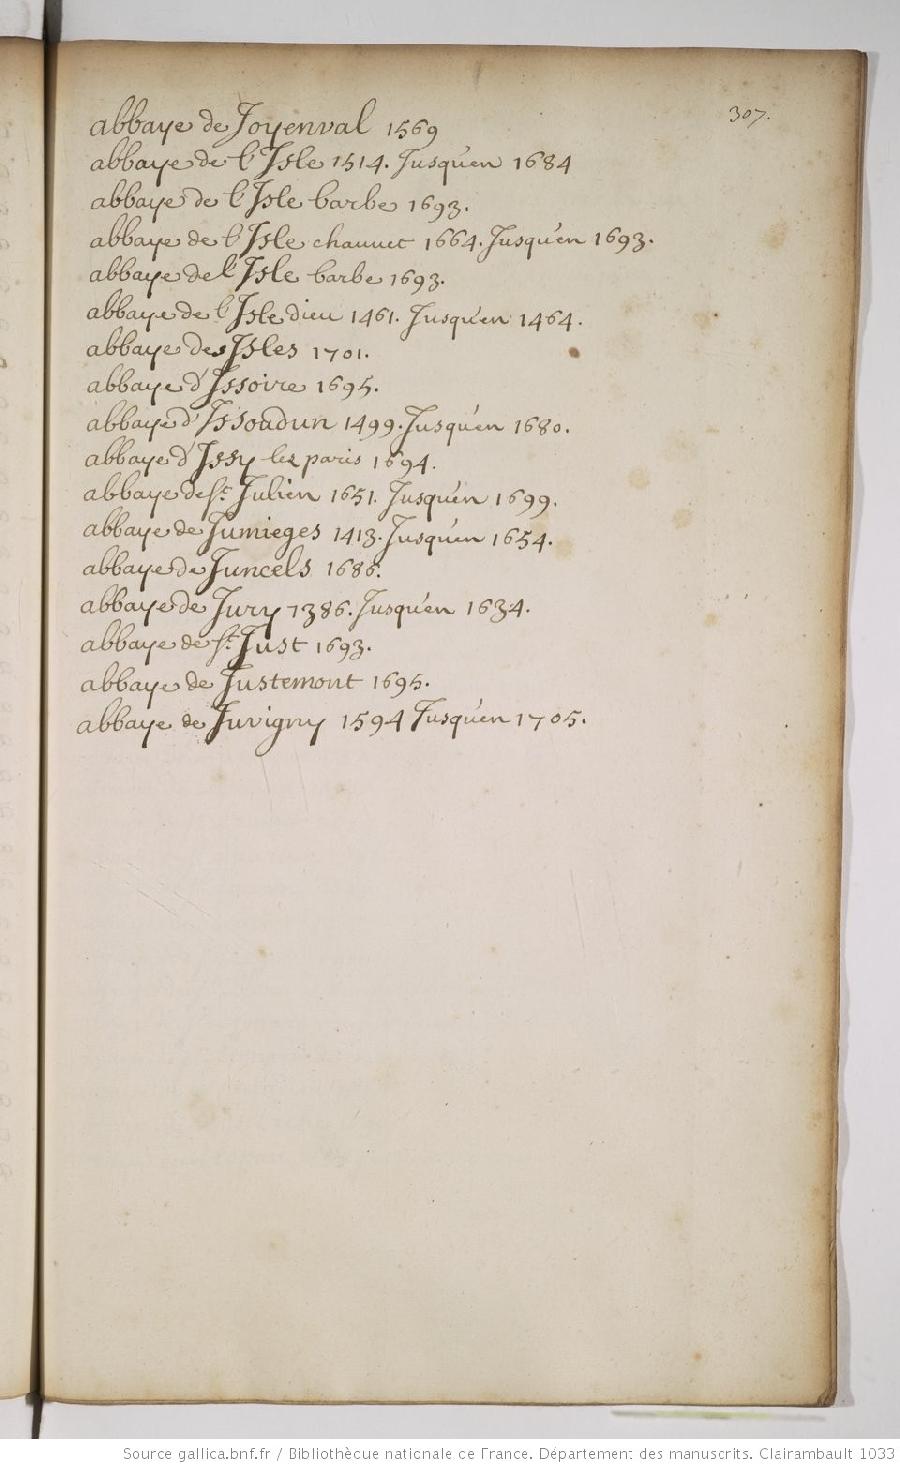 307.
abbaye de Joyenval 1569
abbaye de l'Isle 1514. Jusqu'en 1684
abbaye de l'Isle barbe 1693.
abbaye de l'Isle chauuet 1664. Jusqu'en 1693.
abbaye de l'Isle barbe 1693.
abbaye de l'Isle dieu 1461. Jusqu'en 1464.
abbaye des Isles 1701.
abbaye d'Issoire 1695.
abbaye d'Issoudun 1499. Jusqu'en 1680.
abbaye d'Issy lez paris 1694.
abbaye de st. Julien 1651. Jusqu'en 1699.
abbaye de Jumieges 1413. Jusqu'en 1654.
abbaye de Juncels 1686.
abbaye de Jury 1386. Jusqu'en 1634.
abbaye de st. Just 1693.
abbaye de Justemont 1695.
abbaye de Juvigny 1594 Jusqu'en 1705.
Source gallica.bnf.fr / Bibliothèque nationale de France. Département des manuscrits. Clairambault 1033